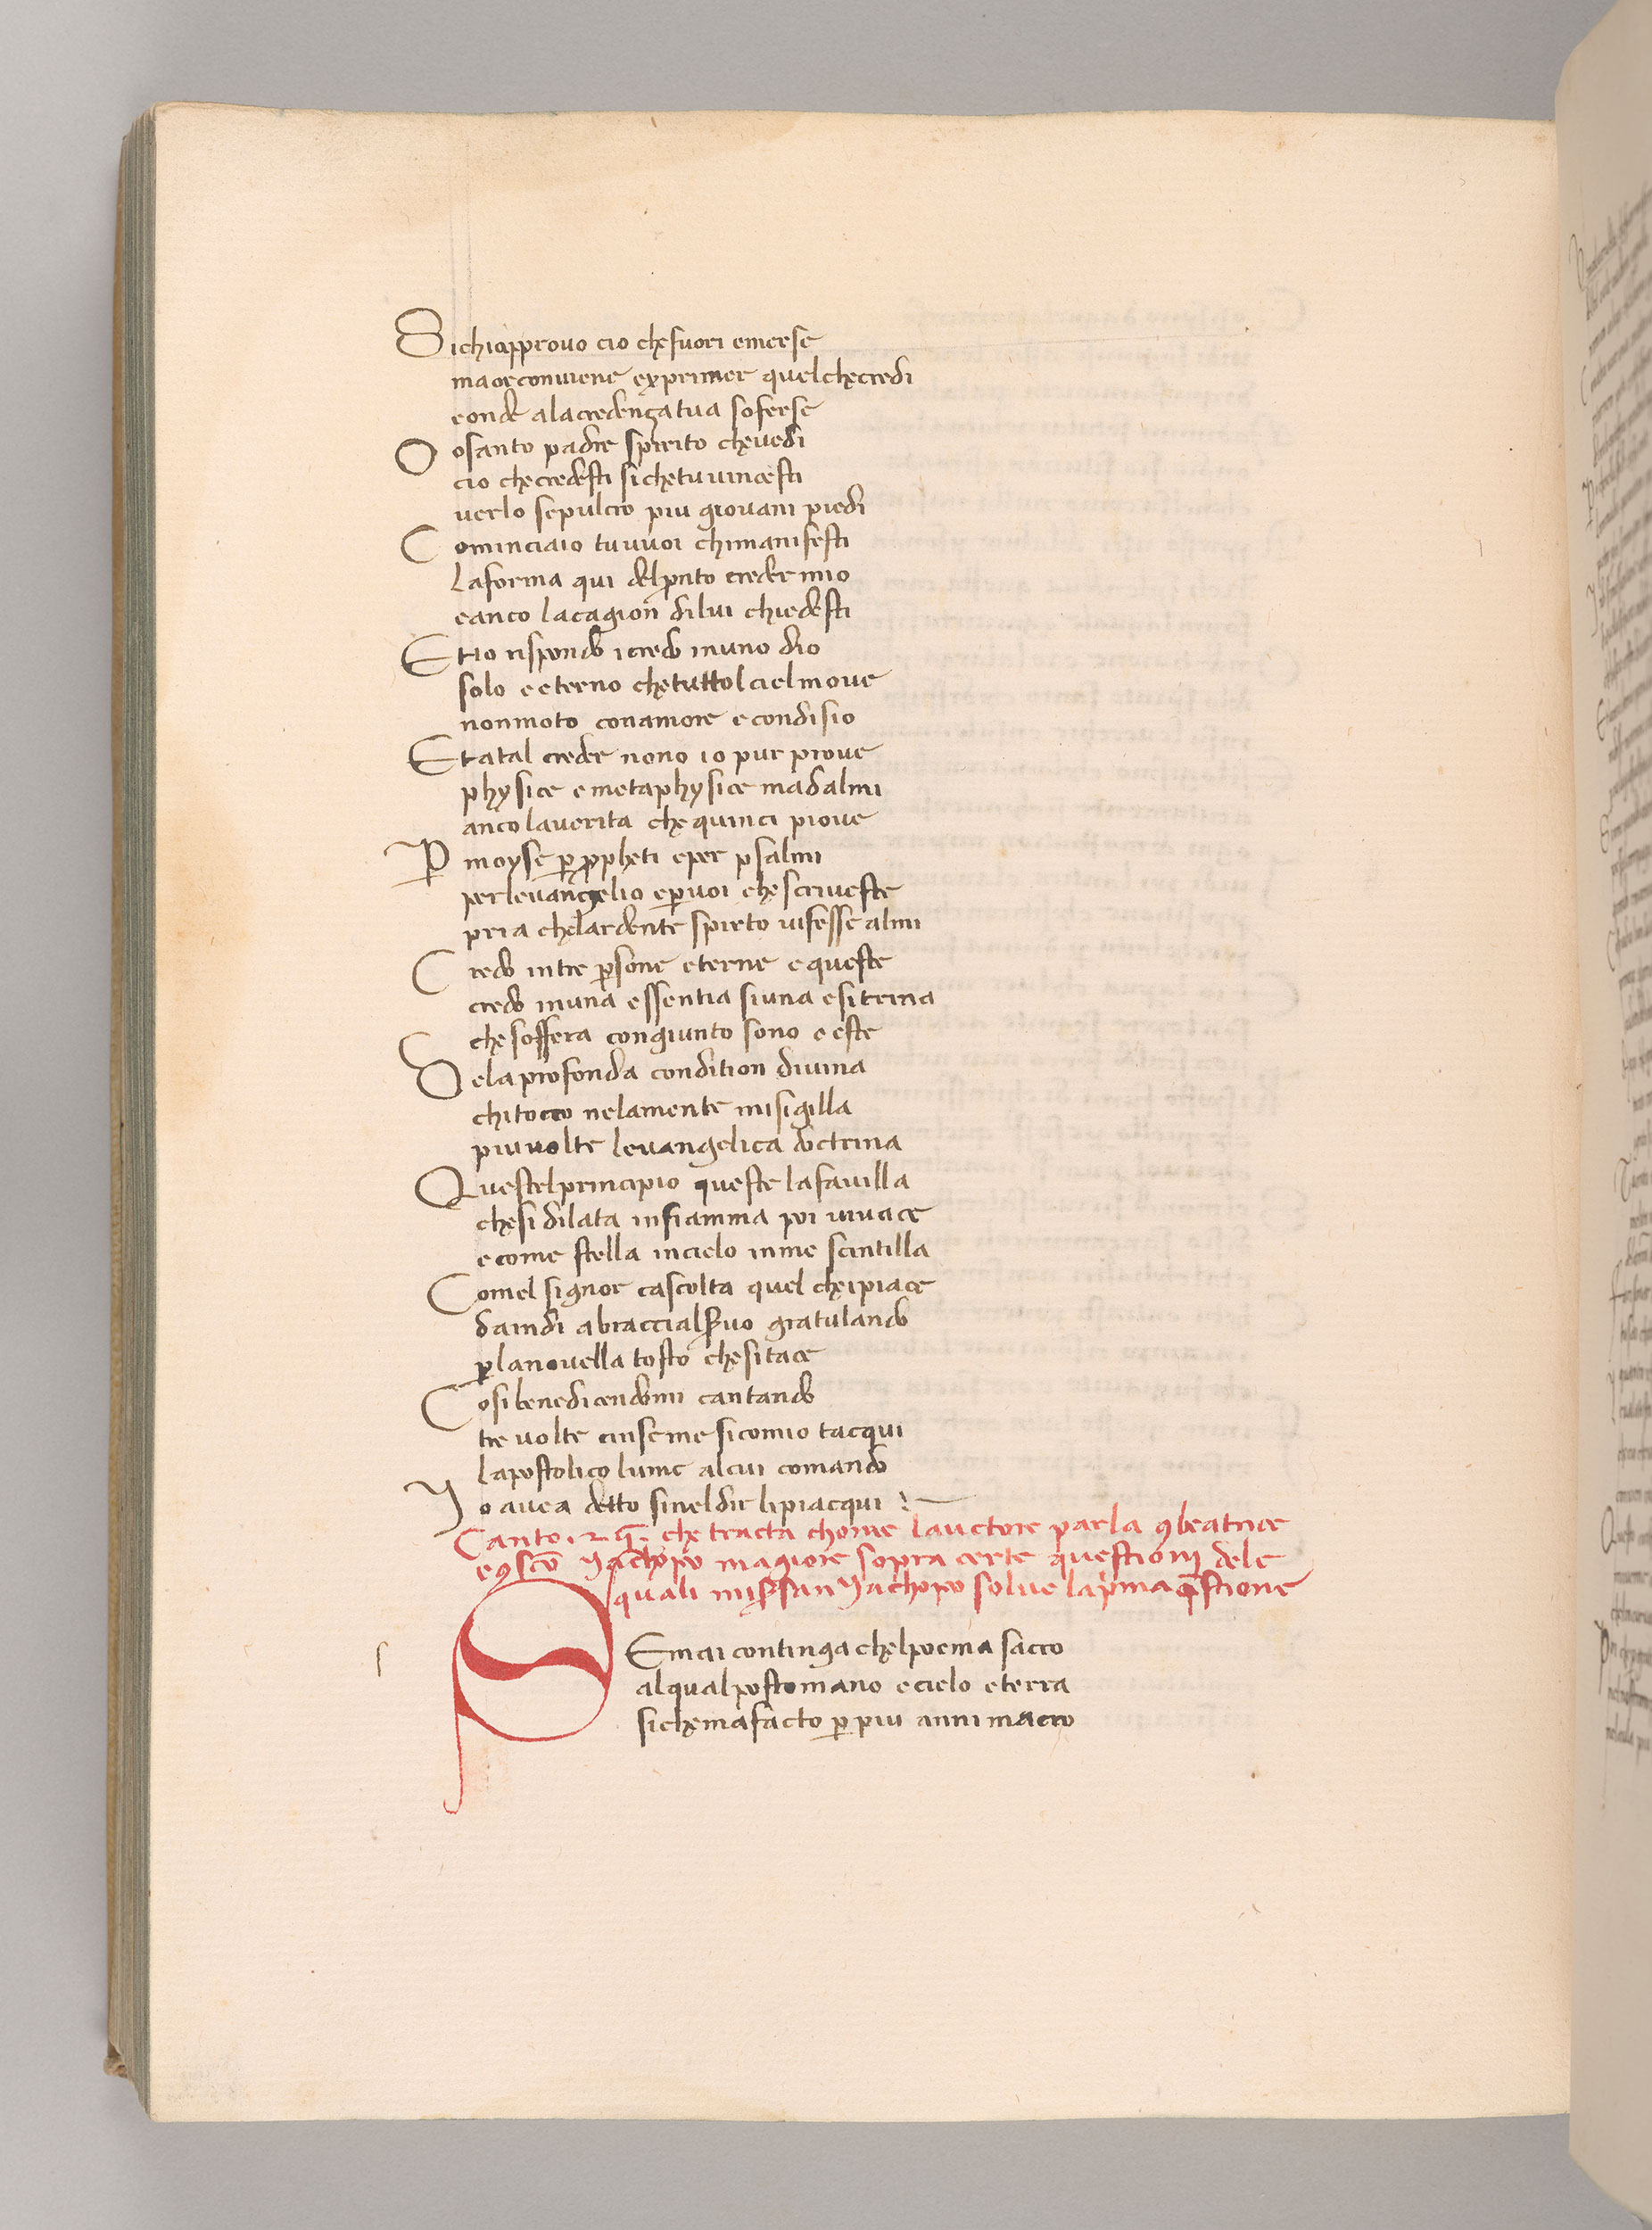 Sichiapprouo cio chefuori emerse
maorconuiene exprimer quelchecredi
eonde alacredenza tua soferse
O osanto padre spirito cheuedi
cio checredesti sichetuuincesti
uerlo sepulcro piu giouani piedi
Cominciaio tuuuoi chimanifesti
laforma qui delprnto creder mio
eanco lacagion dilui chiedesti
Etio rispondo icredo inuno dio
solo eeterno chetuttol cielmoue
nonmoto conamore econdisio
Etatal creder nono io pur proue
physice emetaphysice madalmi
ancolauerita chequinci pioue
P moyse p ppheti eper psalmi
perleuangelio epuoi chescriueste
pria chelardente spirto uifesse almi
Credo intre psone eterne equeste
credo inuna essentia siuna esitrina
chesoffera congiunto sono e este
Delaprofonda condition diuina
chitocco nelamente misigilla
piuuolte leuangelica doctrina
Questelprincipio queste lafauilla
chesidilata infiamma poi uiuace
ecome stella incielo inme scintilla
Comel signor cascolta quel cheipiace
daindi abraccialseruo gratulando
planouella tosto chesitace
Cosibenedicendomi cantando
tre uolte cinseme sicomio tacqui
lapostolico lume alcui comando
Jo auea detto sineldir lipiacqui
Canto .25. che tracta chome lauctore parla 9beatrice
e9sco Jachopo magiore sopra certe questionj dele
quali misser san Jachopo solue lapma qstione
SEmai continga chelpoema sacro
alqualpostomano ecielo eterra
sichemafacto p piu anni macro